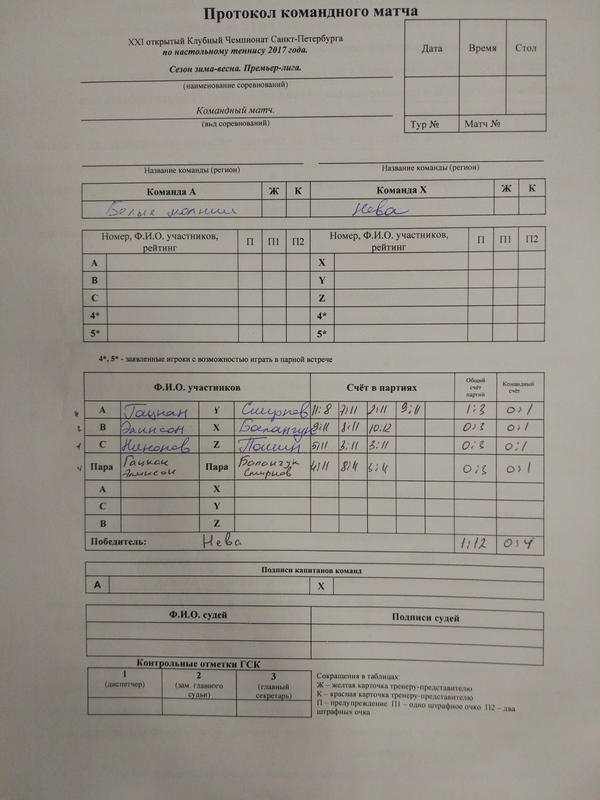 Протокол командного матча
XXI открытый Клубный Чемпионат Санкт-Петербурга
по настольному теннису 2017 года.
Сезон зима-весна. Премьер-лига.
(наименование соревнований)
Командный матч.
(вид соревнований)
Дата Время Стол
Тур № Матч №
Название команды (регион) Название команды (регион)
Команда А Ж К Команда Х Ж К
Белые молнии Нева
Номер, Ф.И.О. участников, рейтинг П П1 П2 Номер, Ф.И.О. участников, рейтинг П П1 П2
А Х
В Y
С Z
4* 4*
5* 5*
4*, 5* - заявленные игроки с возможностью играть в парной встрече
Ф.И.О. участников Счёт в партиях Общий счёт партий Командный счёт
А Гацкан Y Смирнов 11:8 7:11 2:11 9:11 1:3 0:1
В Элинсон Х Балангук 9:11 8:11 10:12 0:3 0:1
С Никонов Z Помин 5:11 3:11 3:11 0:3 0:1
Пара Гацкан Элинсон Пара Балангук Смирнов 4:11 0:3 0:1
А Х
С Y
В Z
Победитель: Нева 1:12 0:4
Подписи капитанов команд
А Х
Ф.И.О. судей Подписи судей
Контрольные отметки ГСК
1 (диспетчер) 2 (зам. главного судьи) 3 (главный секретарь)
Сокращения в таблицах:
Ж – желтая карточка тренеру-представителю
К – красная карточка тренеру-представителю
П – предупреждение П1 – одно штрафное очко П2 – два
штрафных очка